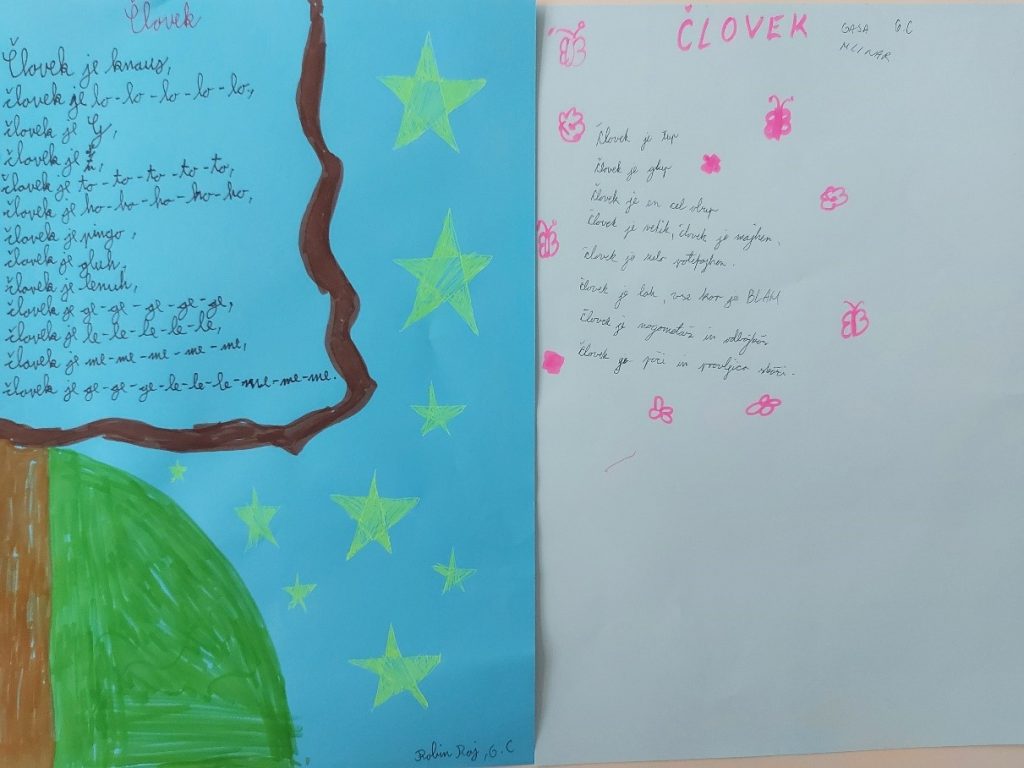 Človek
Človek je knaus,
človek je lo-lo-lo-lo-lo,
človek je
človek je
človek je to-to-to-to-to,
človek je ho-ho-ho-ho-ho,
človek je pingo,
človek je gluh,
človek je lenuh,
človek je ge-ge-ge-ge-ge,
človek je le-le-le-le-le,
človek je me-me-me-me-me,
človek je ge-ge-ge-le-le-le-me-me-me.
Robin Roj, 6.C
ČLOVEK
GAŠA 6.C
MLINAR
Človek je tup
Človek je glup
Človek je en cel
Človek je velik, človek je majhen,
človek je zelo potrpežljen.
človek je lah, vse kar je BLAH
Človek je nogometaš in odbojkaš
Človek ga piči in pravljico